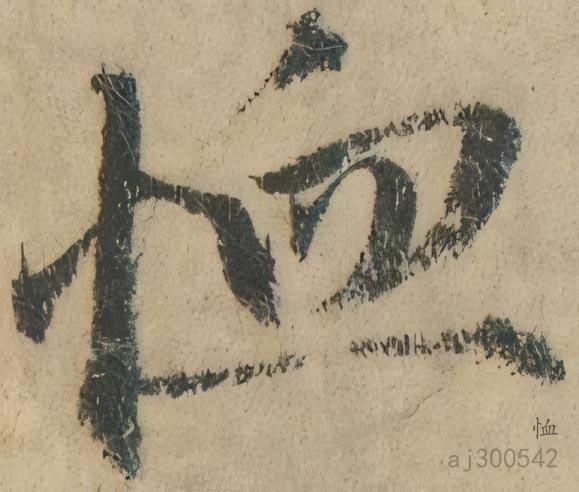 恤
恤
aj300542